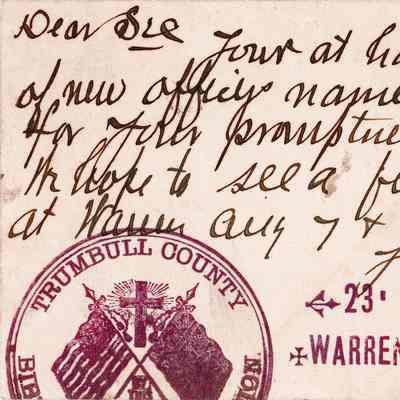 Dear Sec Your at ha
of new officers name
for your promptne
We hope to see a fe
at Warren Aug 7 &
TRUMBULL COUNTY
BIB
ION.
23
WARREN